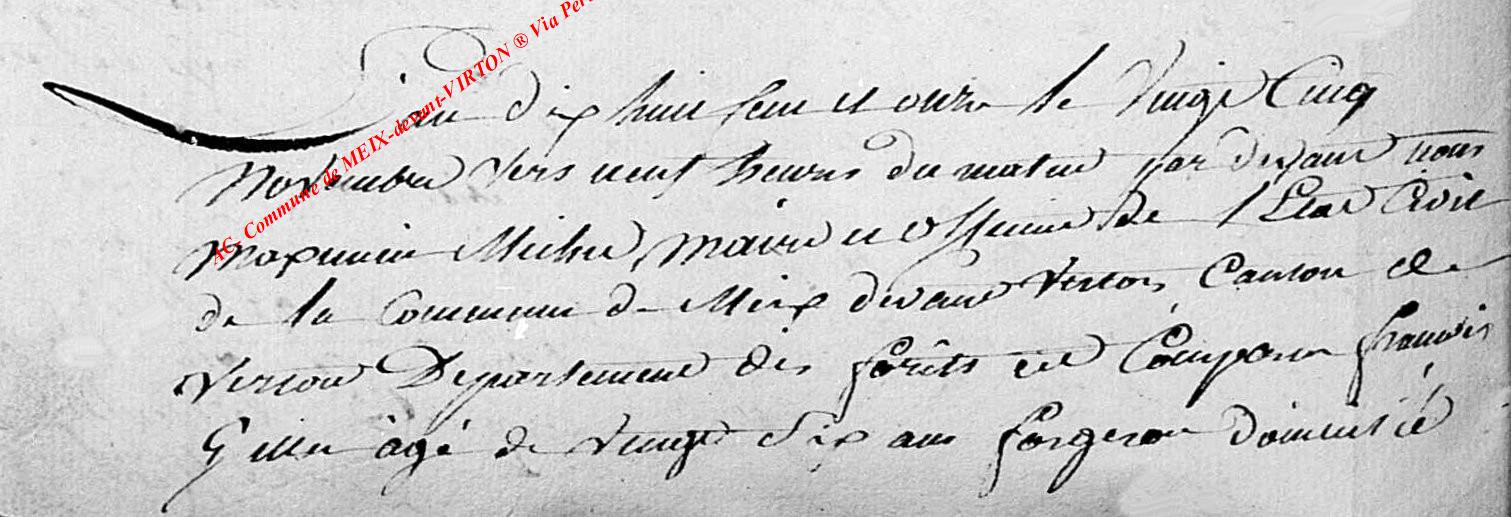 AC. Commune de MEIX-devant-VIRTON ® Via Per
L'an dix huit cent et onze le vingt cinq
Novembre vers neuf heures du matin par devant nous
Maximin Michel maire et officier de l'Etat Civil
de la Commune de Meix devant Virton Canton de
Virton Departement des forêts est Comparu françois
Gillet âgé de vingt six ans forgeron Domicilié